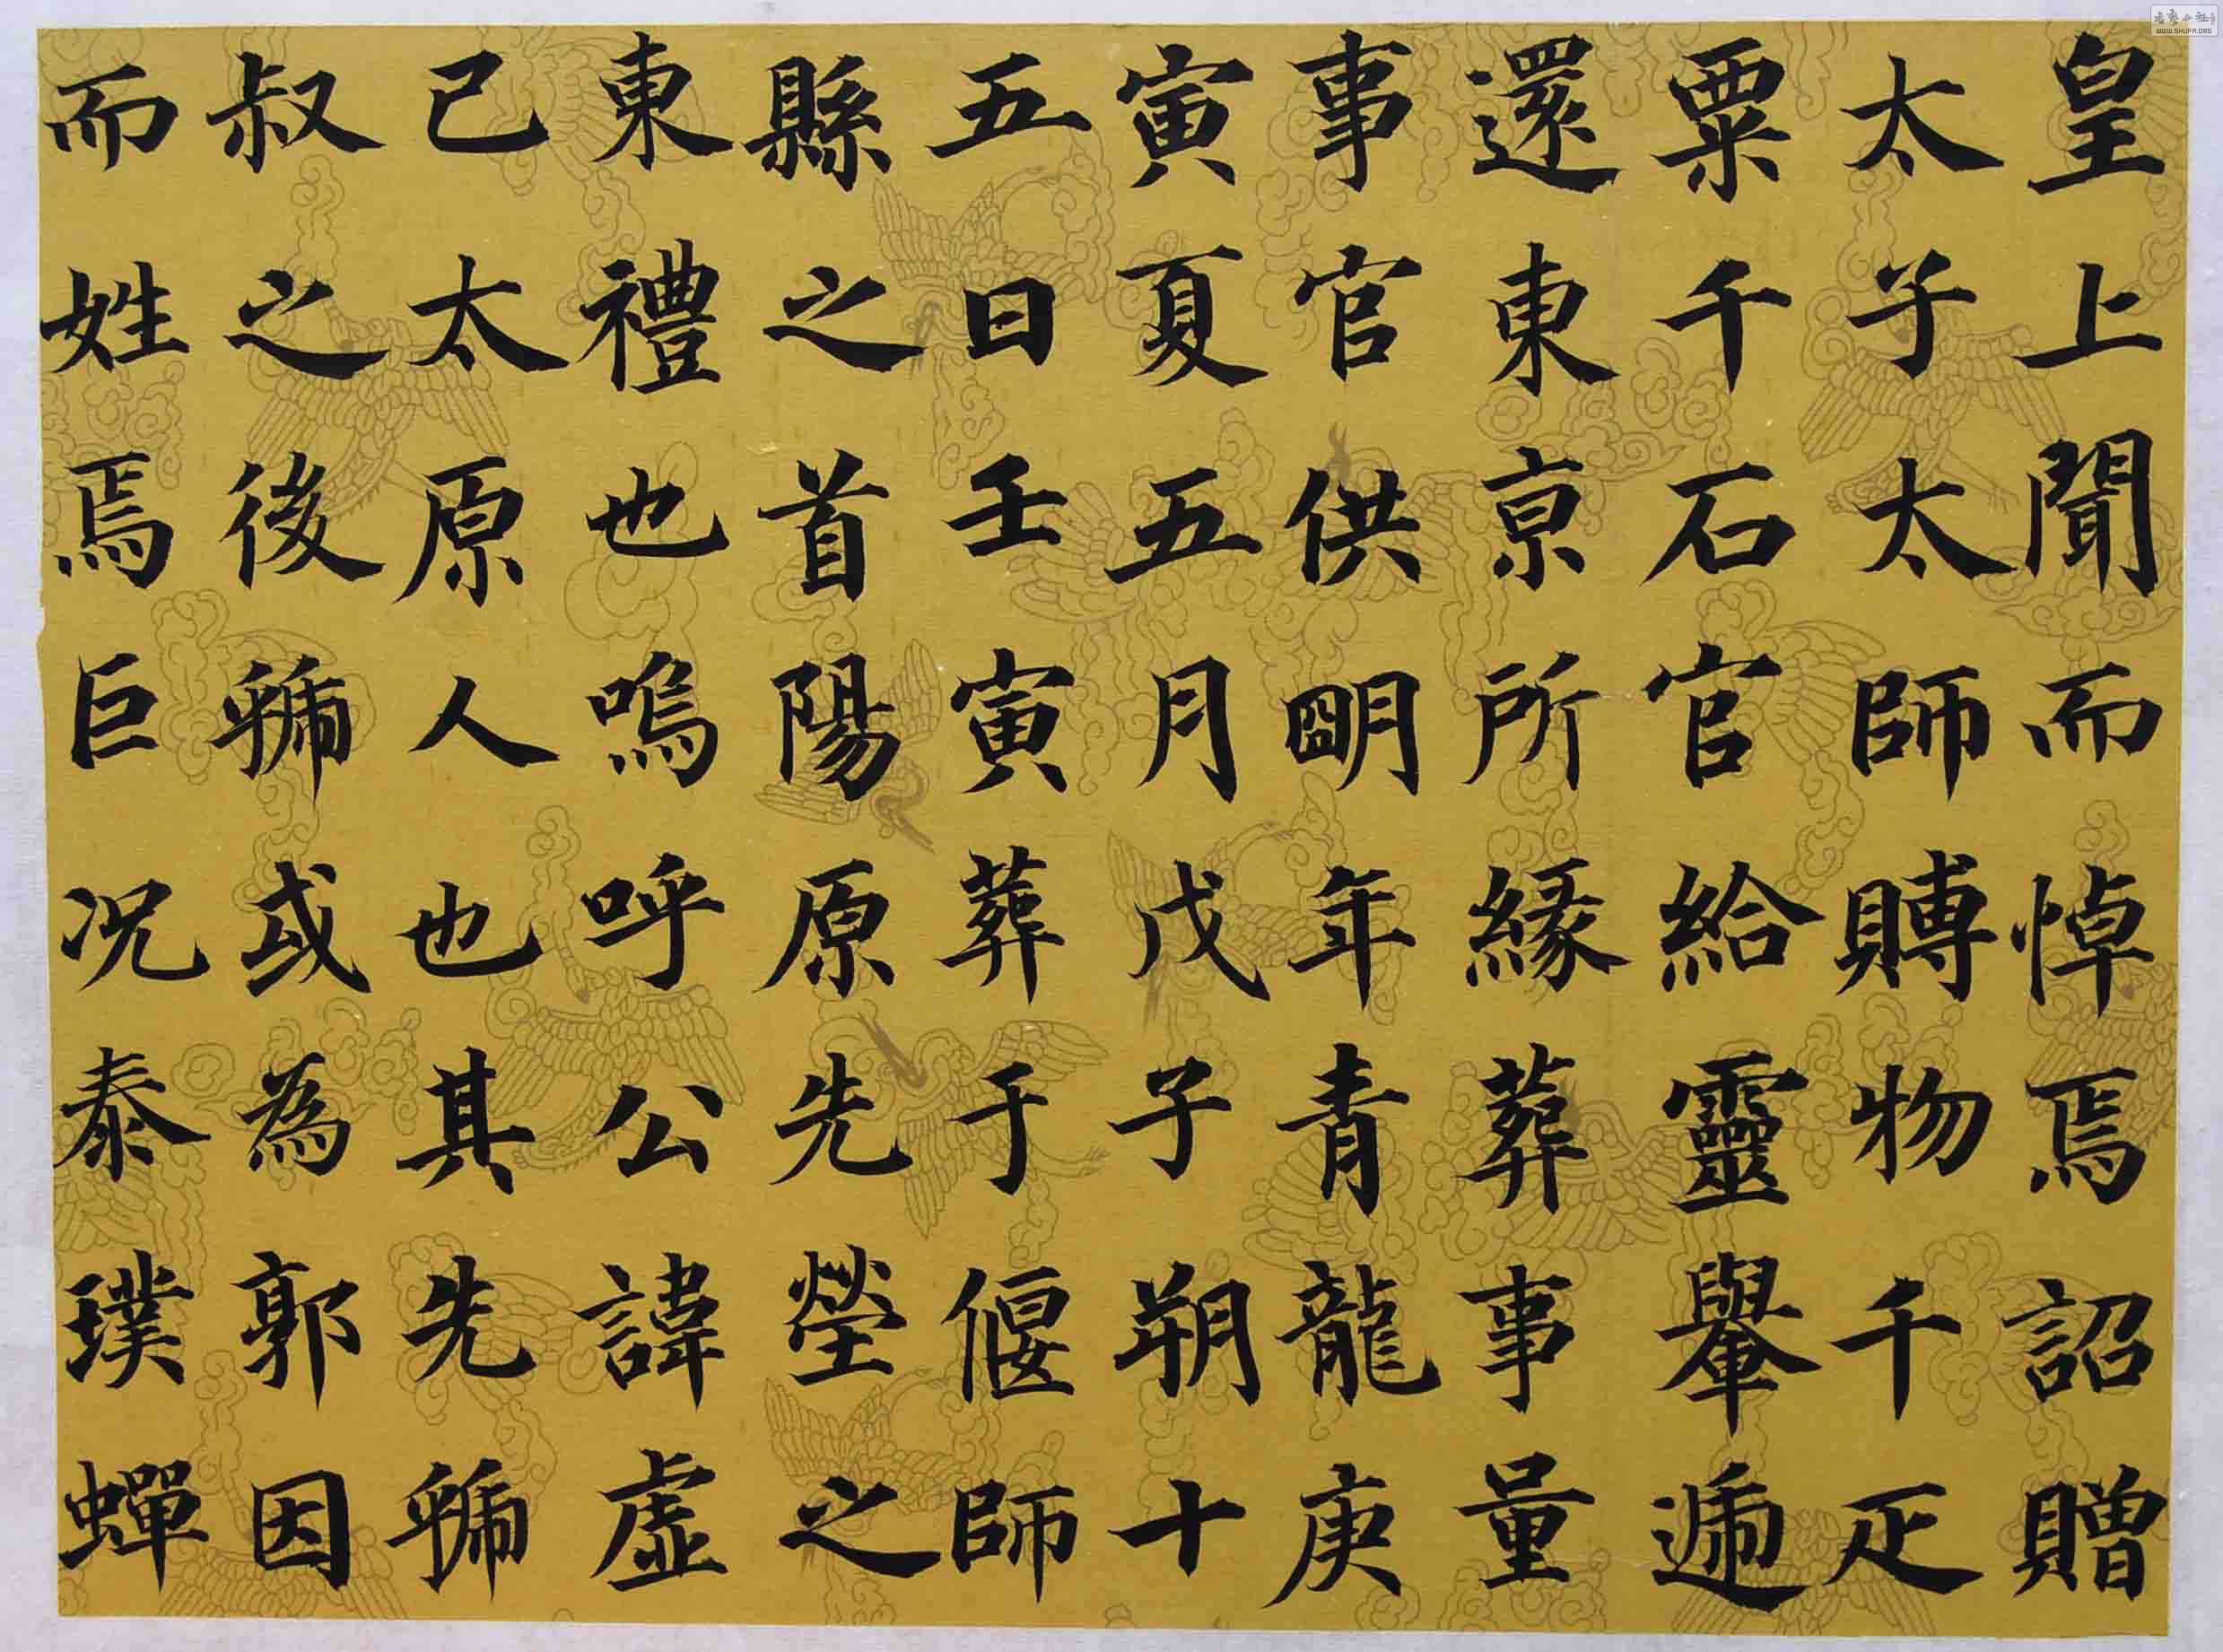 皇上聞而悼焉詔贈
太子太師賻物千疋
粟千石官給靈轝遞
還東亰所緣葬事量
事官供朙年青龍庚
寅夏五月戊子朔十
五日壬寅葬于偃師
縣之首陽原先塋之
東禮也嗚呼公諱虛
己太原人也其先虢
叔之後虢或為郭因
而姓焉巨况泰璞蟬
WWW.SHUFA.ORG